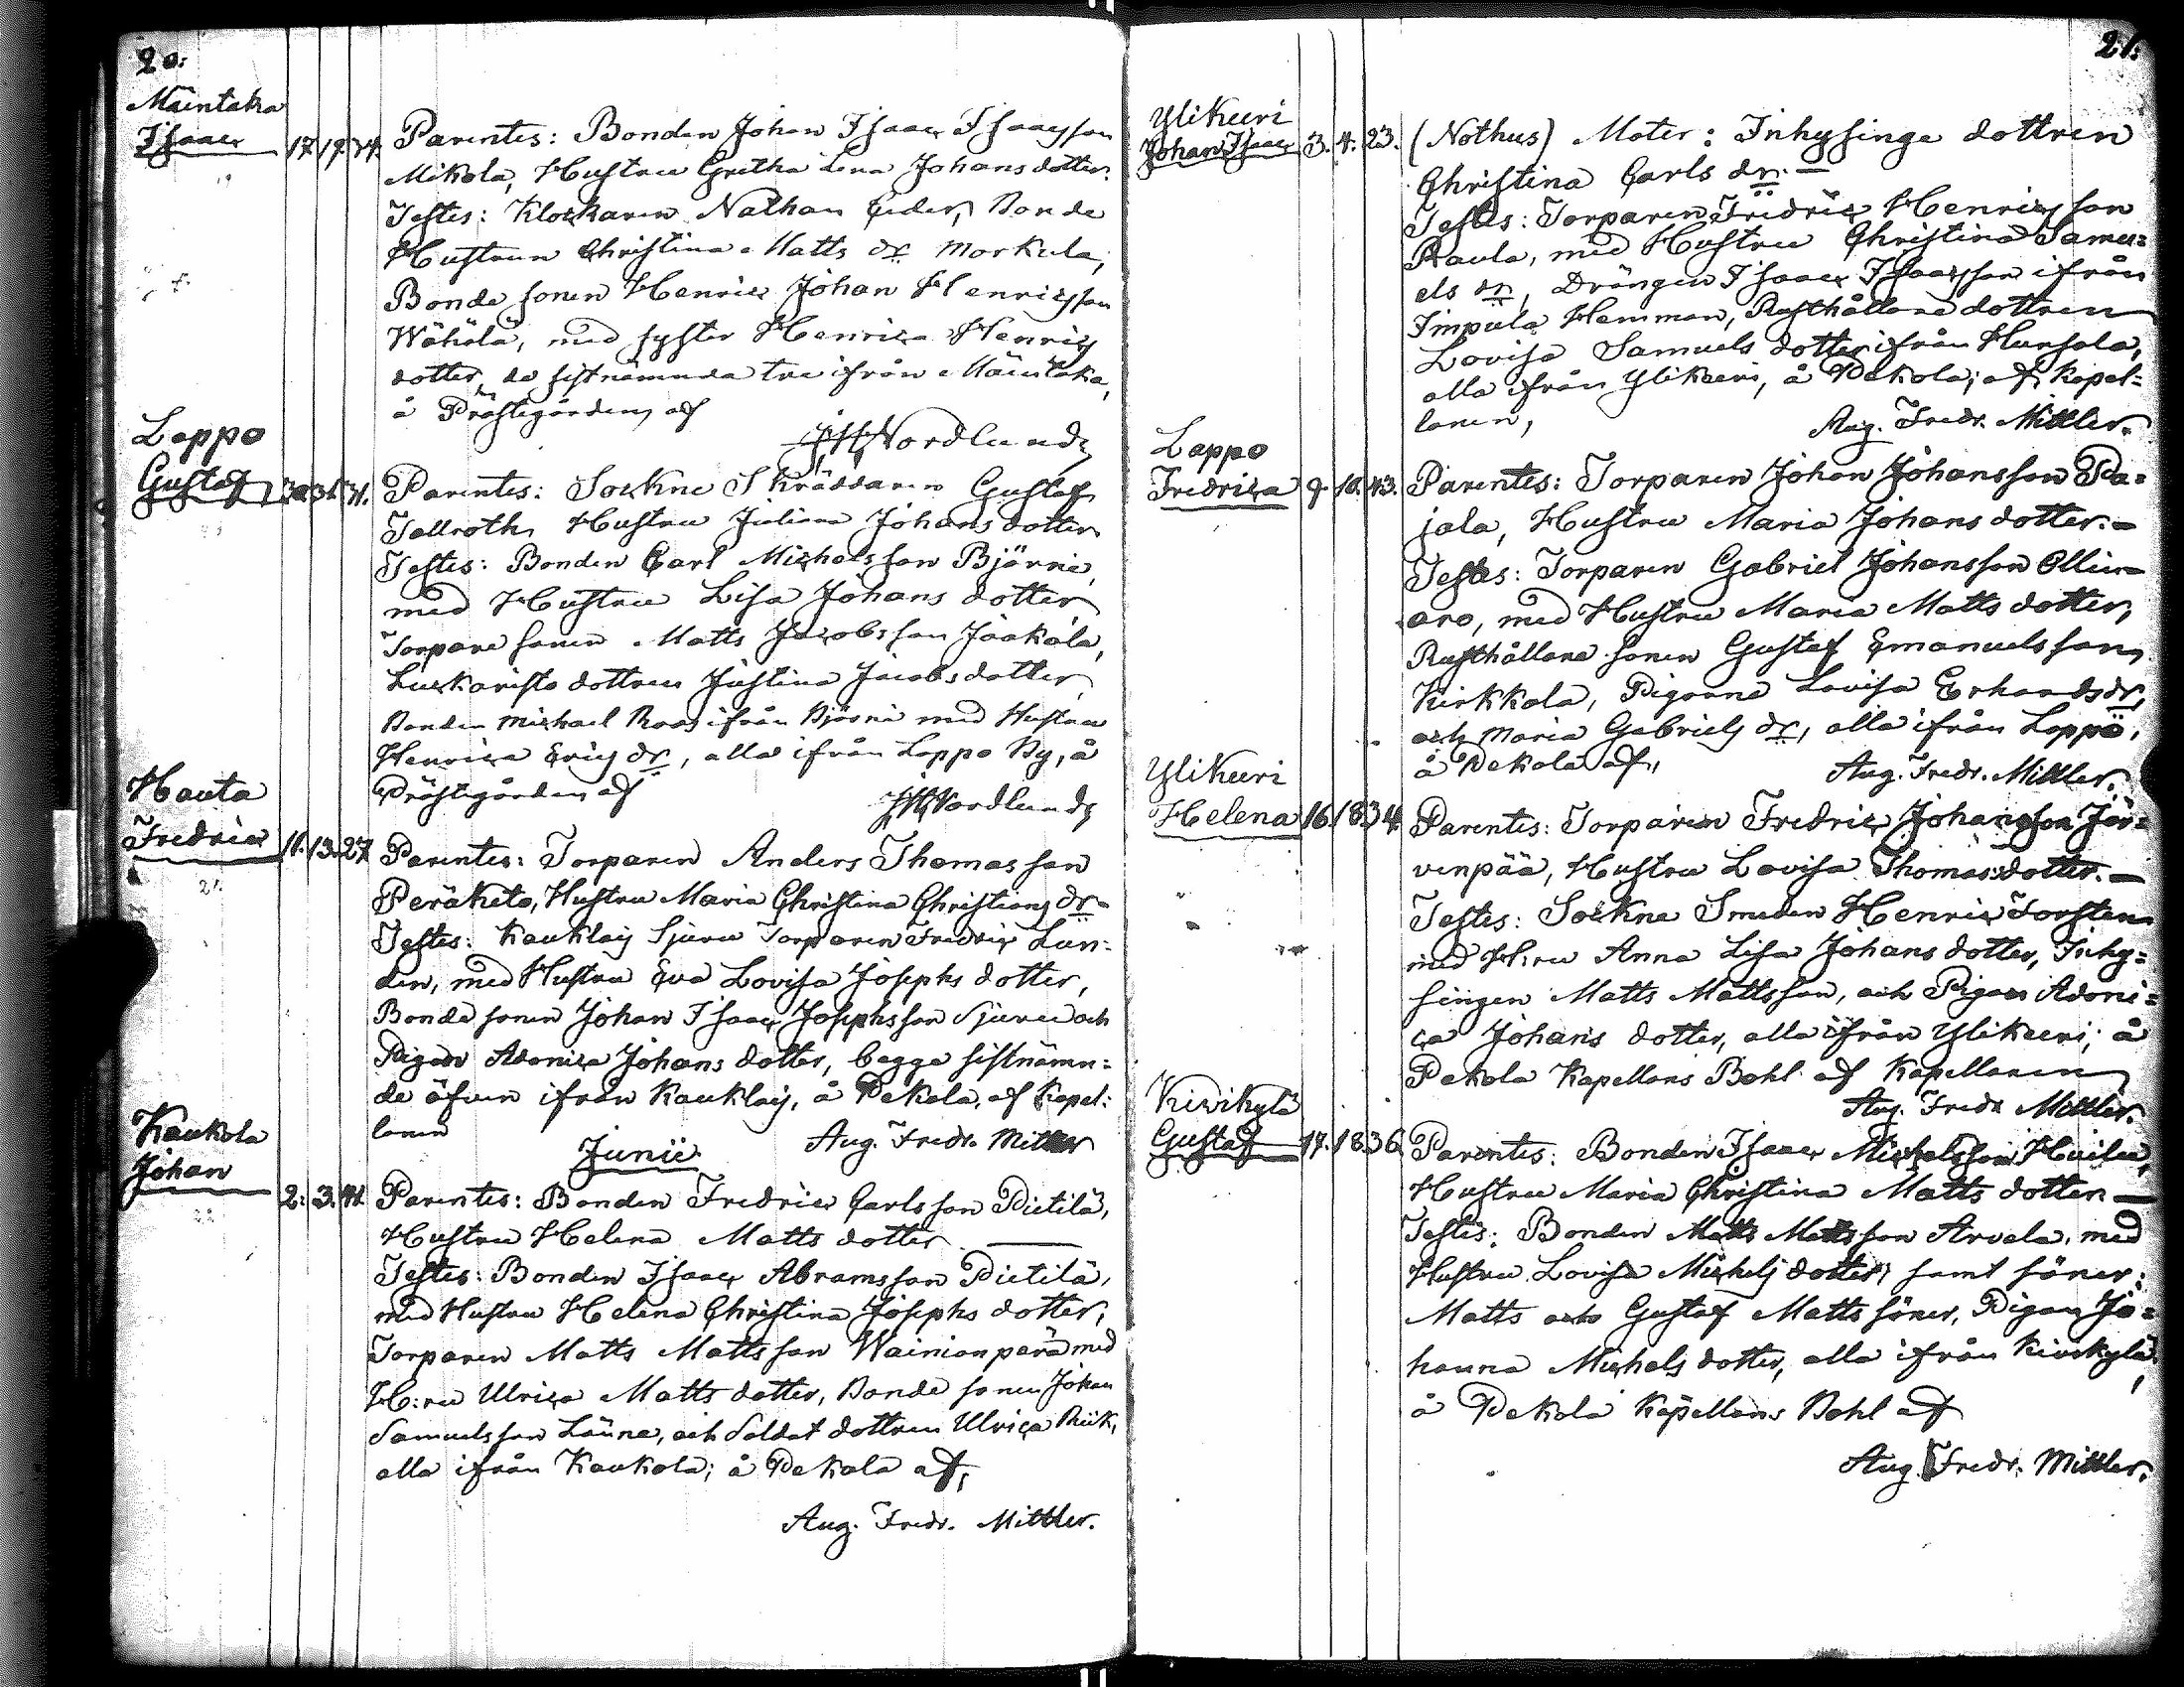 20.
Mäentaka
Isaac 17. 19. 34. Parentes: Bonden Johan Isaac Isaacsson
Mikola, Hustru Gretha Lena Johansdotter.
Testes: Klockaren Nathan Ceder, Bonde
Hustrun Christina Matts dr Morkula,
Bonde sonen Henric Johan Henricsson
Wähälä, med syster Henrica Henrics
dotter, de sistnämnda tre ifrån Mäentaka,
å Prästegården, af
Nordlund
Loppo
Gustaf 30. 31. 31. Parentes: Sockne Skräddaren Gustaf
Tallroth, Hustru Juliana Johans dotter
Testes: Bonden Carl Michelsson Björni,
med Hustru Lisa Johans dotter,
Torpare sonen Matts Jacobsson Jaakola,
dottren Justina Jacobs dotter,
Bonden Michael Roos ifrån Björni med Hustru
Henrica Erics dr, alla ifrån Loppo By, å
Prästegården af
Nordlund
Hauta
Fredric 11. 13. 27. Parentes: Torparen Anders Thomasson
Peräketo, Hustru Maria Christina Christians dr
Testes: Kauklais Sjuru Torparen Fredric Lun-
den, med Hustru Eva Lovisa Josephs dotter,
Bonde sonen Johan Isaac Josephsson Sjuru och
Pigan Adonica Johans dotter, begge sistnämn-
de äfven ifrån Kauklais, å Pekola, af Kapel-
lanen
Aug. Fredr. Mittler
Junii
Kaukola
Johan 2. 3. 41. Parentes: Bonden Fredric Carlsson Pietilä,
Hustru Helena Matts dotter
Testes: Bonden Isaac Abramsson Pietilä,
med Hustru Helena Christina Josephs dotter,
Torparen Matts Mattsson Wainionperä med
H:ru Ulrica Matts dotter, Bonde sonen Johan
Samuelsson Läüne, och Soldat dottren Ulrica Rück,
alla ifrån Kaukola; å Pekola af,
Aug. Fredr. Mittler.
21.
Ylikuri
Johan Isaac 3. 4. 23. (Nothus) Mater: Inhysinge dottren
Christina Carls dr.
Testes: Torparen Fredric Henricsson
Raula, med Hustru Christina Samu-
els dr, Drängen Isaac Isaacsson ifrån
Simpula Hemman, Rusthållare dottren
Lovisa Samuels dotter ifrån Hursala,
alla ifrån Ylikuri, å Pekola; af Kapel-
lanen,
Aug. Fredr. Mittler.
Loppo
Fredrica 9. 10. 43. Parentes: Torparen Johan Johansson Pa-
jala, Hustru Maria Johans dotter.
Testes: Torparen Gabriel Johansson Ollin-
aro, med Hustru Maria Matts dotter,
Rusthållare sonen Gustaf Emanuelsson
Kirkkola, Pigorne Lovisa Erhards dr,
och Maria Gabriels dr, alla ifrån Loppo,
å Pekola af,
Aug. Fredr. Mittler.
Ylikuri
Helena 16. 18. 34. Parentes: Torparen Fredric Johansson Jär-
venpää, Hustru Lovisa Thomas dotter.
Testes: Sockne Smeden Henric Torsten
med H:ru Anna Lisa Johans dotter, Inhy-
singen Matts Mattsson, och Pigan Adoni-
ca Johans dotter, alla ifrån Ylikuri; å
Pekola Kapellans Bohl af Kapellanen
Aug. Fredr. Mittler.
Kivikylä
Gustaf 17. 18. 36. Parentes: Bonden Isaac Michelsson Huilu,
Hustru Maria Christina Matts dotter
Testes: Bonden Matts Mattsson Arvela, med
Hustru Lovisa Michels dotter, samt söner:
Matts och Gustaf Matts söner, Pigan Jo-
hanna Michels dotter, alla ifrån Kivikylä,
å Pekola Kapellans Bohl af
Aug. Fredr. Mittler.